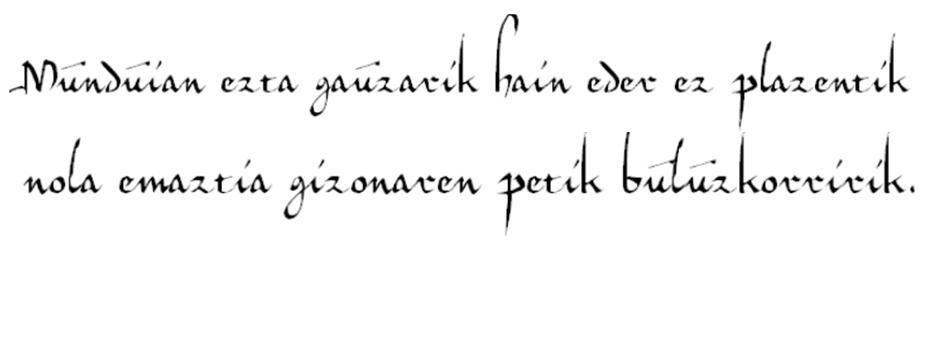 Munduian ezta gauzarik hain eder ez plazentik
nola emaztia gizonaren petik buluzkorririk.